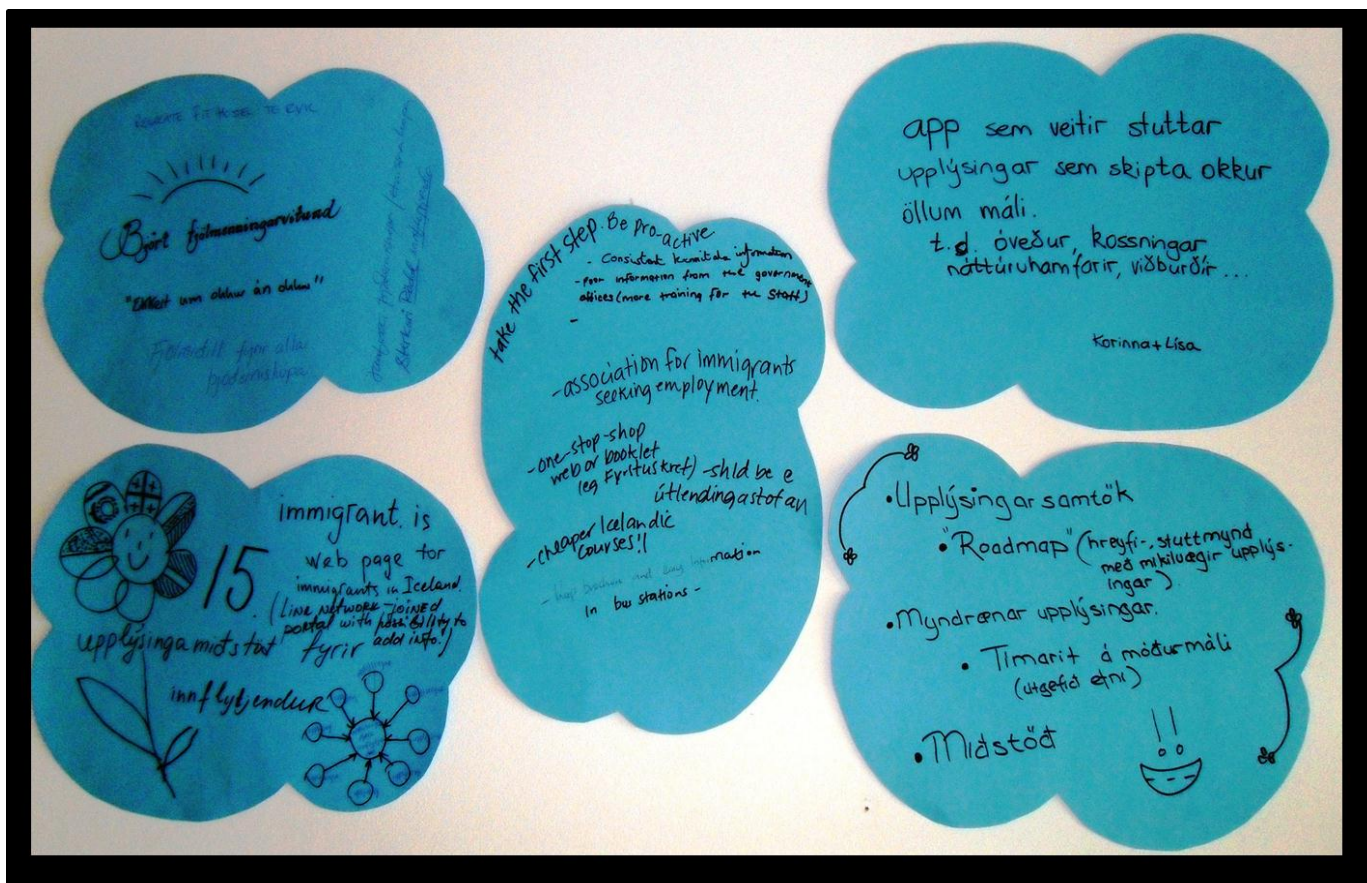 Björt fjölmenningarvitund
"Ekkert um okkur án okkur"
fyrir alla
take the first step. Be pro-active
- Consistent information
- Poor information from the government
offices (more training for the Staff)
-
- association for immigrants
seeking employment.
- one-stop-shop
web or booklet
(eg Fyrstuskref) - shld be e
útlendingastofan
- cheaper Icelandic
courses!!
- and easy information
in bus stations -
app sem veitir stuttar
upplýsingar sem skipta okkur
öllum máli.
t.d. óveður, kossningar
náttúruhamfarir, viðburðir...
Korinna + Lísa
15.
immigrant.is
web page for
immigrants in Iceland.
(Line Network - joined
portal with possibility to
add info!)
upplýsingamiðstöð fyrir
innflytjendur
• Upplýsingar samtök
• "Roadmap" (hreyfi-, stuttmynd
með mikilvægir upplýs-
ingar)
• Myndrænar upplýsingar.
• Tímarit á móðurmáli
(útgefið efni)
• Miðstöð